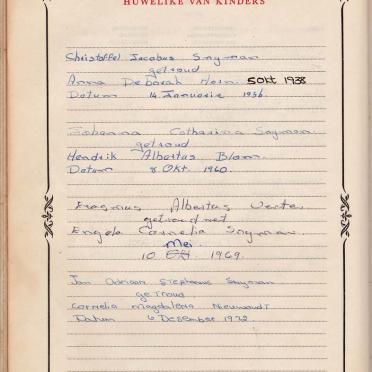 HUWELIKE VAN KINDERS
Christoffel Jacobus Snyman
getroud
Anna Deborah Horn 5 Okt 1938
Datum 14 Januarie 1956.
Johanna Catharina Snyman.
getroud
Hendrik Albertus Blom.
Datum 8 Okt. 1960.
Erasmus Albertus Venter
getroud met
Engela Cornelia Snyman
Mei
10 1969.
Jan Adriaan Stephanus Snyman
getroud
Cornelia Magdalena Nieuwoudt
Datum 6 Desember 1972